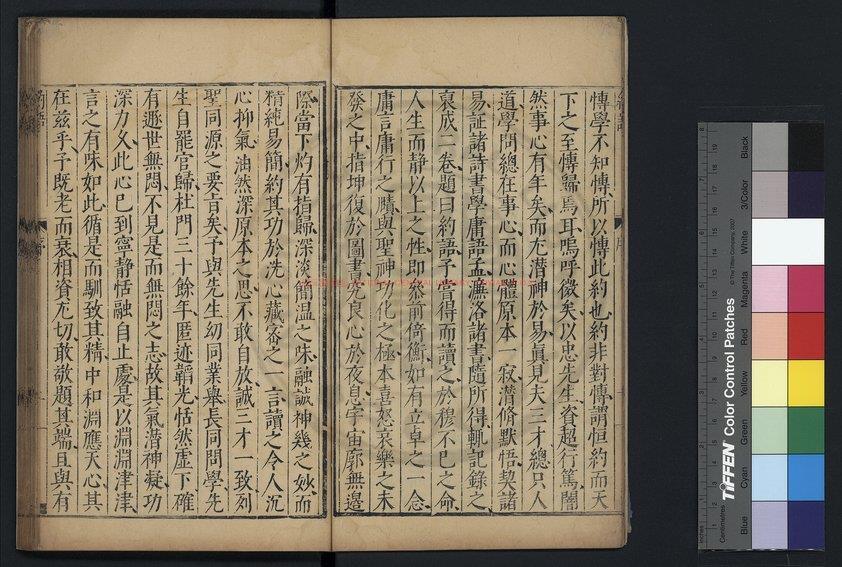 慱學不知慱所以慱此約也約非對慱謂恒約而天
下之至慱歸焉耳嗚呼微矣以忠先生資超行篤闇
然事心有年矣而尤潜神於易眞見夫三才緫只人
道學問緫在事心而心體原本一寂潜脩默悟契諸
易証諸詩書學庸語孟濂洛諸書隨所得輒記錄之
裒成二卷題曰約語予嘗得而讀之於穆不已之命
人生而静以上之性即叅前倚衡如有立卓之一念
庸言庸行之賾與聖神功化之極本喜怒哀樂之未
發之中指坤復於圖書克良心於夜息宇宙廓無邊
際當下灼有指歸深淡簡温之味融誠神幾之妙而
精純易簡約其功於洗心藏密之一言讀之令人沉
心抑氣油然深原本之思不敢自放誠三才一致列
聖同源之要旨矣予與先生幼同業舉長同問學先
生自罷官歸杜門三十餘年匿迹韜光恬然虛下確
有遯世無悶不見是而無悶之志故其氣潜神凝功
深力久此心已到寧静恬融自止處是以淵淵津津
言之有味如此循是而馴致其精中和淵應天心其
在兹乎予既老而衰相資尤切敢敬題其端且與有
約語
序
TIFFEN Color Control Patches
© The Tiffen Company, 2007
Blue
Cyan
Green
Yellow
Red
Magenta
White
3/Color
Black
Inches
Centimetres